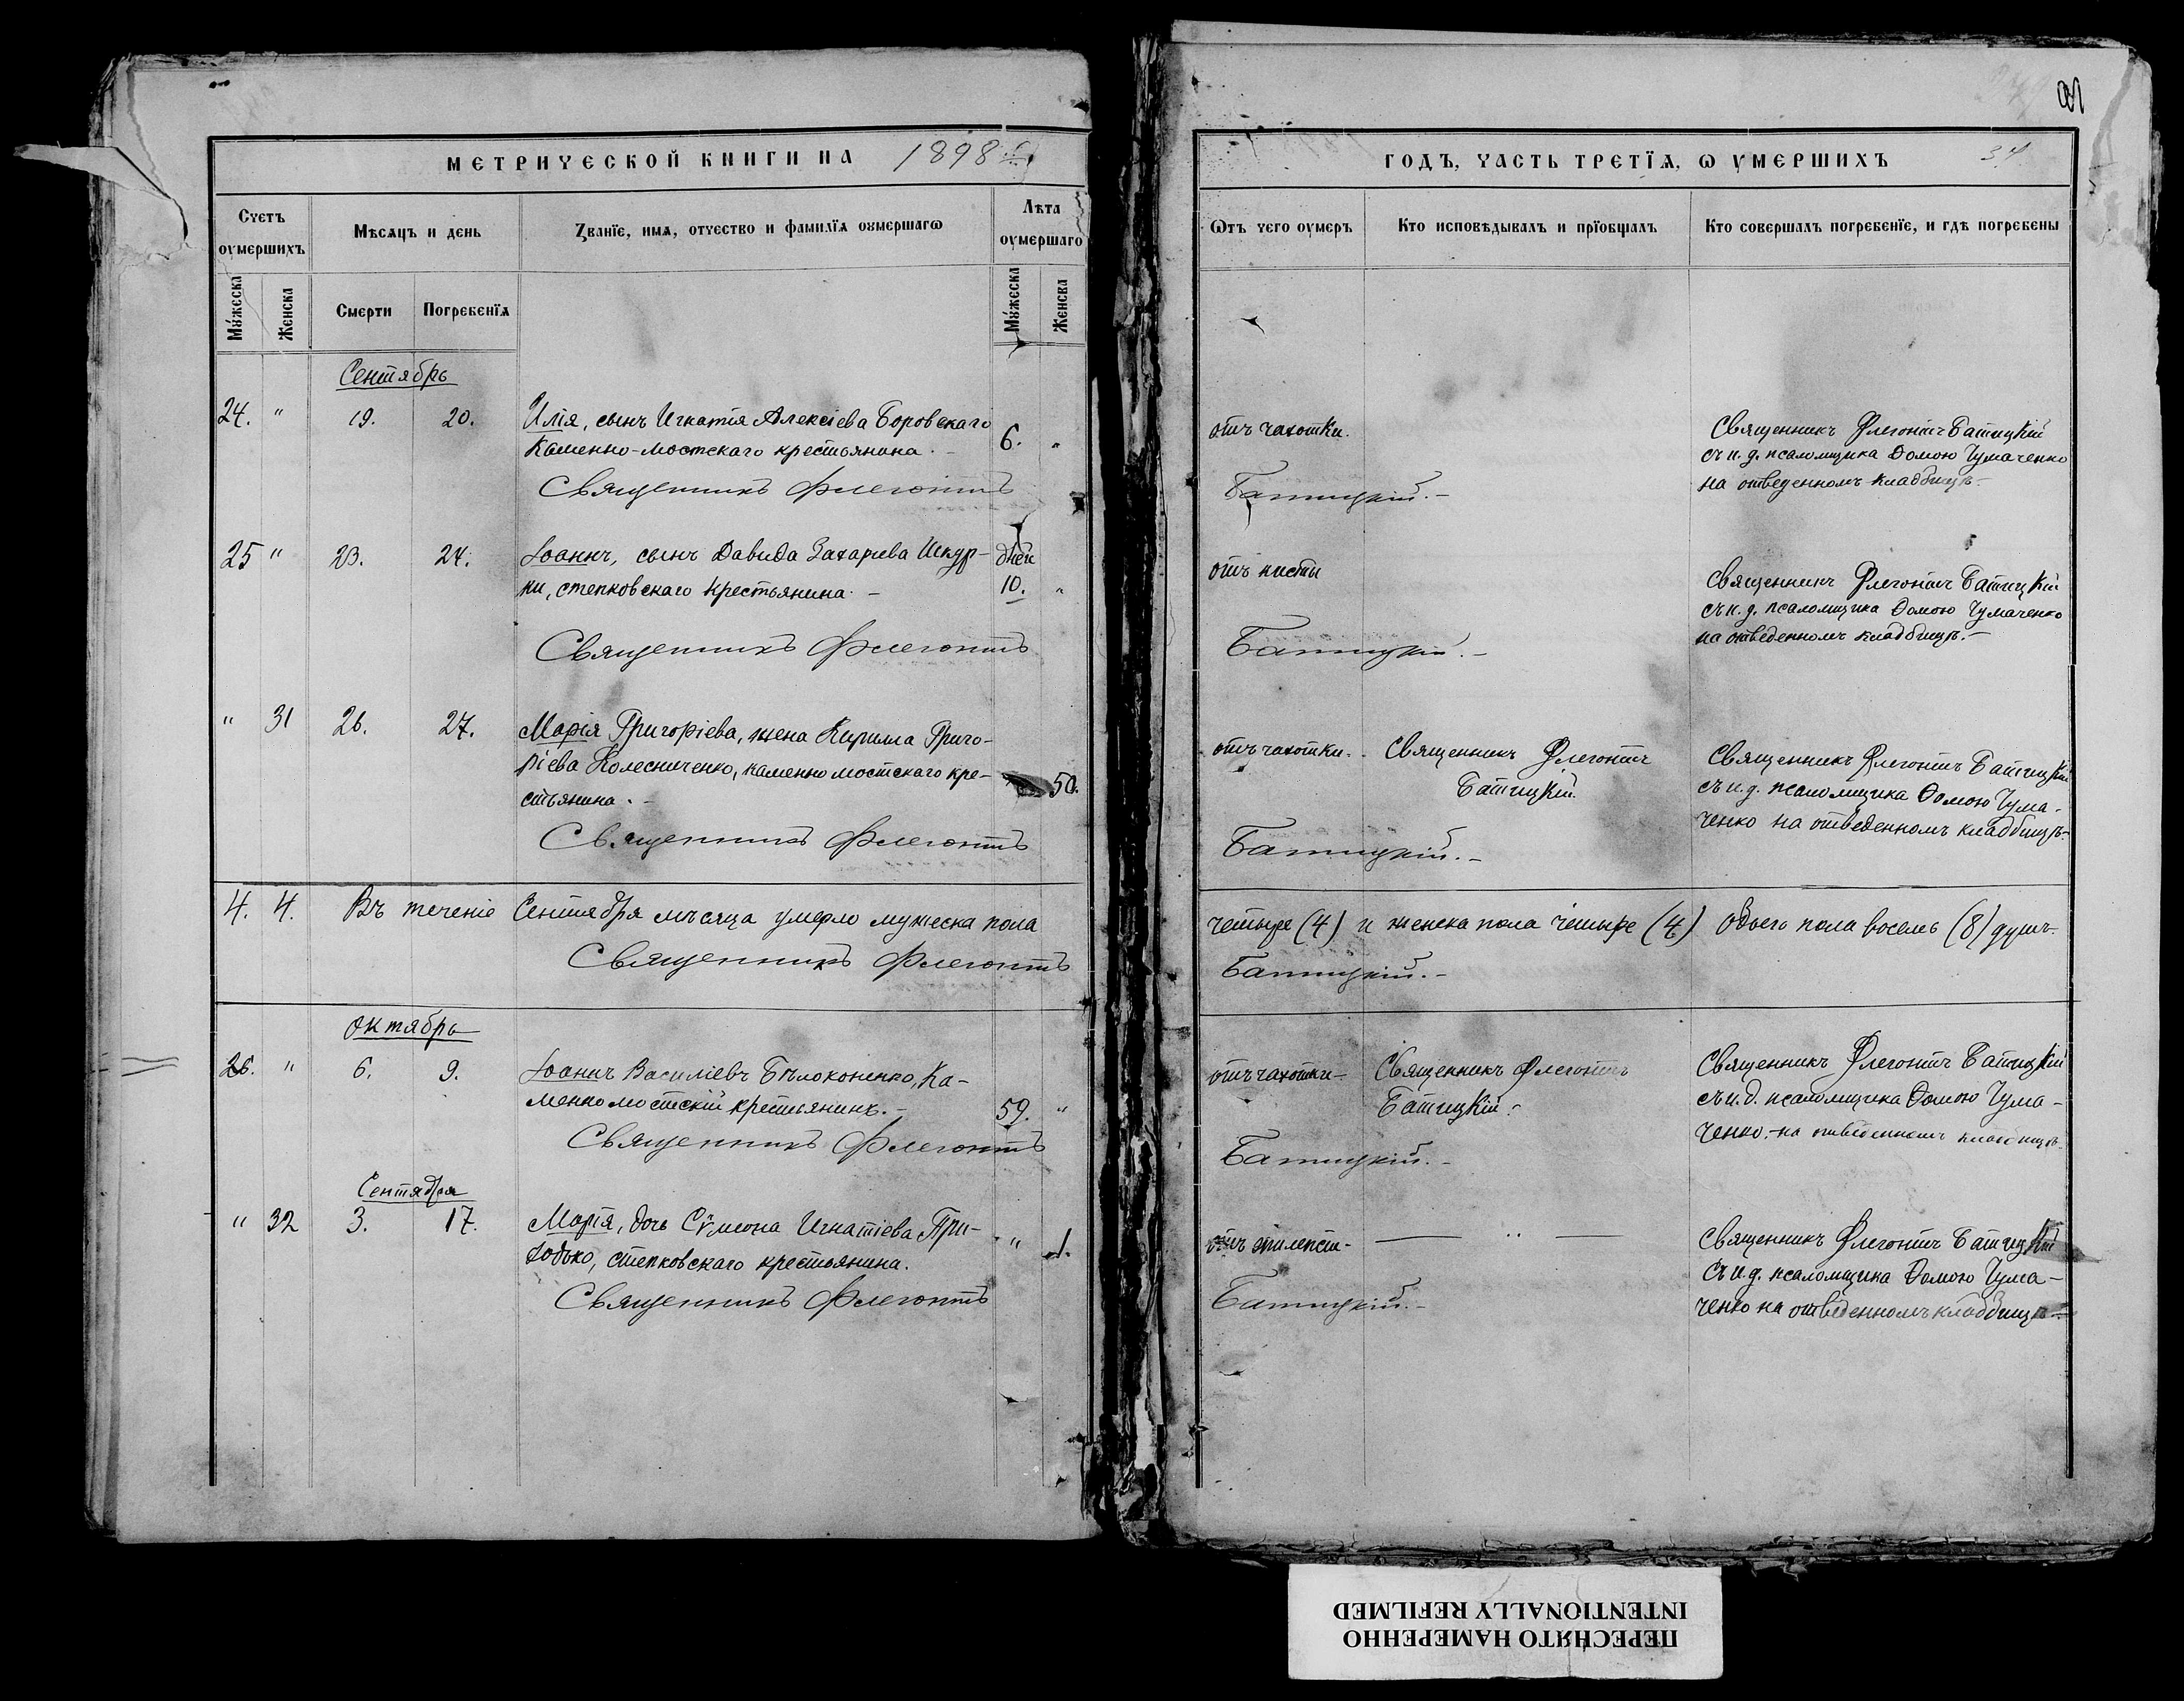 МЕТРИЧЕСКОЙ КНИГИ НА 1898 г.
Счетъ оумершихъ
Мѣсяцъ и день
Званїе, имя, отчество и фамилїя оумершагѡ
Лѣта оумершаго
Мужеска
Женска
Смерти
Погребенїя
Мужеска
Женска
Сентябрь
24. " 19. 20. Илія, сынъ Игнатія Алексіева Боровскаго 6. "
Каменно-мостскаго крестьянина. -
Священникъ Флегонтъ
25 " 23. 24. Іоаннъ, сынъ Давида Захарiева Шкур- дней
ки, степковскаго крестьянина. - 10. "
Священникъ Флегонтъ
" 31 26. 27. Марія Григоріева, жена Кирилла Григо-
ріева Колесниченко, каменномостскаго кре- 50.
стьянина. -
Священникъ Флегонтъ
4. 4. Въ теченіе Сентября мѣсяца умерло мужеска пола
Священникъ Флегонтъ
Октябрь
26. " 6. 9. Іоаннъ Василіевъ Бѣлоконенко, Ка-
менномостскій крестьянинъ. - 59. "
Священникъ Флегонтъ
Сентября
" 32 3. 17. Марія, дочь Сѵмеона Игнатіева При- " 1.
ходько, степковскаго крестьянина.
Священникъ Флегонтъ
ГОДЪ, ЧАСТЬ ТРЕТЇЯ, Ѡ УМЕРШИХЪ 34
Ѡтъ чего оумеръ
Кто исповѣдывалъ и прїобщалъ
Кто совершалъ погребенїе, и гдѣ погребены
отъ чахотки.
Священникъ Флегонтъ Батицкій
съ и. д. псаломщика Ѳомою Чумаченко
на отведенномъ кладбищѣ. -
Батицкій. -
отъ
Священникъ Флегонтъ Батицкій
съ и. д. псаломщика Ѳомою Чумаченко
на отведенномъ кладбищѣ. -
Батицкій. -
отъ чахотки. - Священникъ Флегонтъ
Батицкій.
Священникъ Флегонтъ Батицкій
съ и. д. псаломщика Ѳомою Чума-
ченко на отведенномъ кладбищѣ. -
Батицкій. -
четыре (4) и женска пола четыре (4) Обоего пола восемь (8) душъ. -
Батицкій. -
отъ чахотки - Священникъ Флегонтъ
Батицкій. -
Священникъ Флегонтъ Батицкій
съ и. д. псаломщика Ѳомою Чума-
ченко. - на отведенномъ кладбищѣ. -
Батицкій. -
отъ эпилепсіи -
Священникъ Флегонтъ Батицкій
съ и. д. псаломщика Ѳомою Чума-
ченко на отведенномъ кладбищѣ -
Батицкій. -
ПЕРЕСНЯТО НАМЕРЕННО
INTENTIONALLY REFILMED